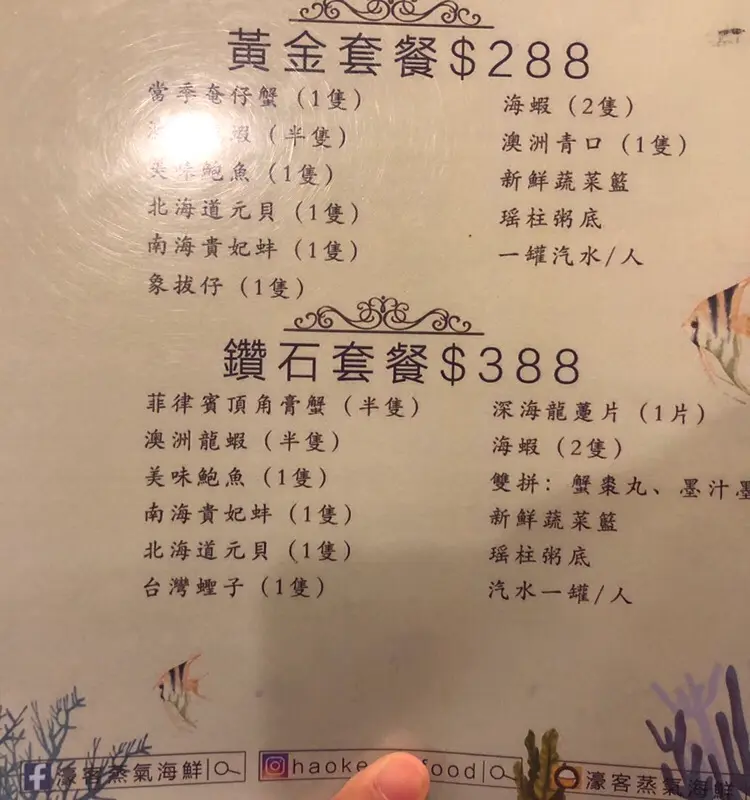 黃金套餐$288
當季奄仔蟹（1隻）
蝦（半隻）
美味鮑魚（1隻）
北海道元貝（1隻）
南海貴妃蚌（1隻）
象拔仔（1隻）
海蝦（2隻）
澳洲青口（1隻）
新鮮蔬菜籃
瑶柱粥底
一罐汽水/人
鑽石套餐$388
菲律賓頂角膏蟹（半隻）
澳洲龍蝦（半隻）
美味鮑魚（1隻）
南海貴妃蚌（1隻）
北海道元貝（1隻）
台灣蟶子（1隻）
深海龍躉片（1片）
海蝦（2隻）
雙拼：蟹棗丸、墨汁墨
新鮮蔬菜籃
瑶柱粥底
汽水一罐/人
濠客蒸氣海鮮
haoke food
濠客蒸氣海鮮